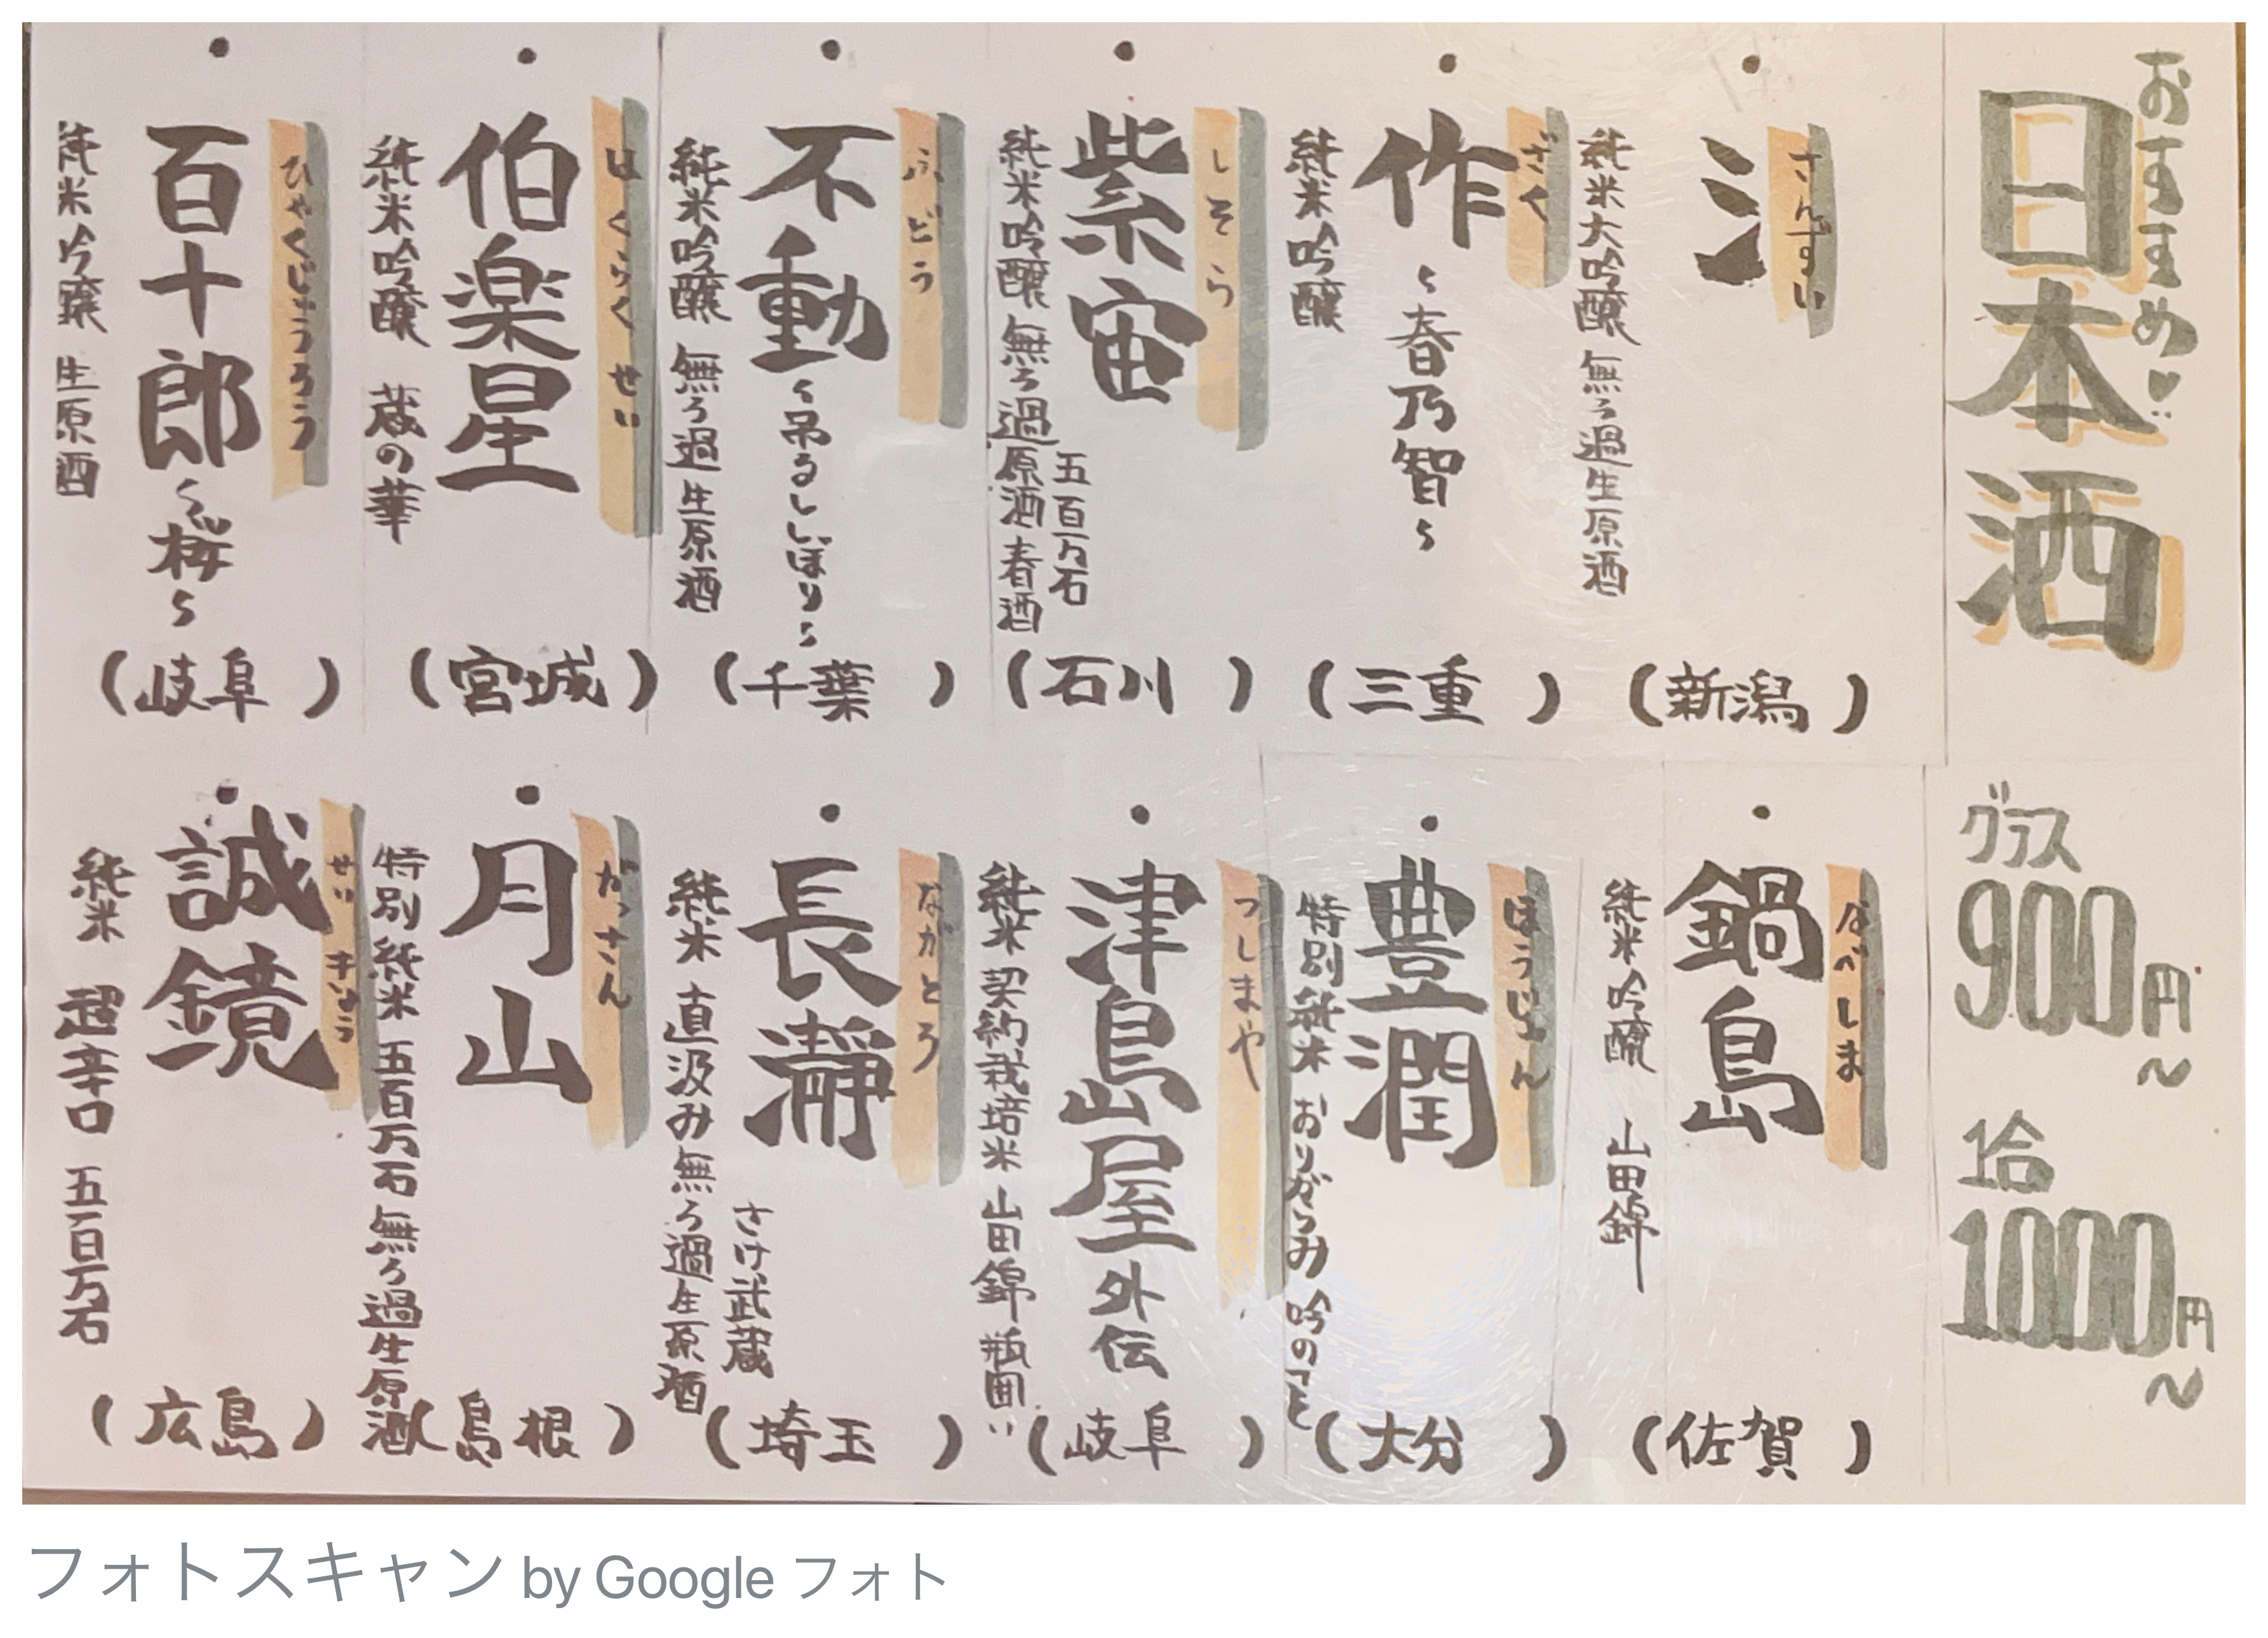 おすすめ♥
日本酒
グラス
900円～
1合
1000円～
・
さんずい
氵
純米大吟醸 無ろ過生原酒
(新潟)
・
ざく
作
～春乃智～
純米吟醸
(三重)
・
しそら
紫宙
五百万石
純米吟醸 無ろ過原酒 春酒
(石川)
・
ふどう
不動
～吊るししぼり～
純米吟醸 無ろ過生原酒
(千葉)
・
はくらくせい
伯楽星
純米吟醸 蔵の華
(宮城)
・
ひゃくじゅうろう
百十郎
～桜～
純米吟醸 生原酒
(岐阜)
・
なべしま
鍋島
純米吟醸 山田錦
(佐賀)
・
ほうじゅん
豊潤
特別純米 おりがらみ 吟のこと
(大分)
・
つしまや
津島屋
外伝
純米 契約栽培米 山田錦 瓶囲い
(岐阜)
・
ながとろ
長瀞
さけ武蔵
純米 直汲み無ろ過生原酒
(埼玉)
・
がっさん
月山
特別純米 五百万石 無ろ過生原酒
(島根)
・
せいきょう
誠鏡
純米 超辛口 五百万石
(広島)
フォトスキャン by Google フォト